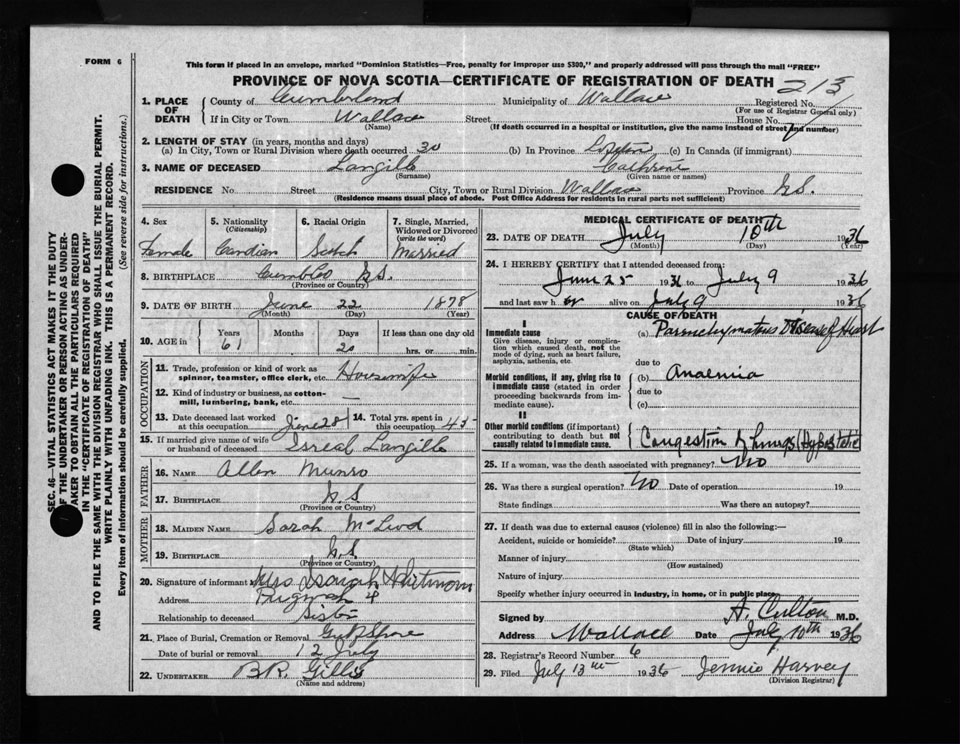 FORM 6
This form if placed in an envelope, marked "Dominion Statistics—Free, penalty for improper use $300," and properly addressed will pass through the mail "FREE"
PROVINCE OF NOVA SCOTIA—CERTIFICATE OF REGISTRATION OF DEATH 213
SEC. 46—VITAL STATISTICS ACT MAKES IT THE DUTY
OF THE UNDERTAKER OR PERSON ACTING AS UNDER-
TAKER TO OBTAIN ALL THE PARTICULARS REQUIRED
IN THE "CERTIFICATE OF REGISTRATION OF DEATH"
AND TO FILE THE SAME WITH THE DIVISION REGISTRAR WHO SHALL ISSUE THE BURIAL PERMIT.
WRITE PLAINLY WITH UNFADING INK. THIS IS A PERMANENT RECORD.
Every item of Information should be carefully supplied. (See reverse side for instructions.)
1. PLACE OF DEATH
County of Cumberland Municipality of Wallace Registered No.
(For use of Registrar General only)
If in City or Town Wallace Street House No.
(Name) (If death occurred in a hospital or institution, give the name instead of street and number)
2. LENGTH OF STAY (in years, months and days)
(a) In City, Town or Rural Division where death occurred 30 (b) In Province (c) In Canada (if immigrant)
3. NAME OF DECEASED Langille Cathrine
(Surname) (Given name or names)
RESIDENCE No Street City, Town or Rural Division Wallace Province N.S.
(Residence means usual place of abode. Post Office Address for residents in rural parts not sufficient)
4. Sex
Female
5. Nationality
(Citizenship)
Candian
6. Racial Origin
Scotch
7. Single, Married, Widowed or Divorced
(write the word)
Married
8. BIRTHPLACE Cumb Co N.S.
(Province or Country)
9. DATE OF BIRTH June 22 1878
(Month) (Day) (Year)
10. AGE in Years Months Days If less than one day old
61 20 hrs. or min.
OCCUPATION
11. Trade, profession or kind of work as
spinner, teamster, office clerk, etc. Housewife
12. Kind of industry or business, as cotton-
mill, lumbering, bank, etc. —
13. Date deceased last worked
at this occupation June 28
14. Total yrs. spent in
this occupation 43
15. If married give name of wife
or husband of deceased Isreal Langille
FATHER
16. NAME Allen Munro
17. BIRTHPLACE N.S
(Province or Country)
MOTHER
18. MAIDEN NAME Sarah McLeod
19. BIRTHPLACE N.S
(Province or Country)
20. Signature of informant Mrs
Address Pugwash
Relationship to deceased Sister
21. Place of Burial, Cremation or Removal Shore
Date of burial or removal 12 July
22. UNDERTAKER B.R. Gillis
(Name and address)
MEDICAL CERTIFICATE OF DEATH
23. DATE OF DEATH July 10th 1936
(Month) (Day) (Year)
24. I HEREBY CERTIFY that I attended deceased from:
June 25 1936 to July 9 1936
and last saw her alive on July 9 1936
CAUSE OF DEATH
I
Immediate cause
Give disease, injury or complica-
tion which caused death, not the
mode of dying, such as heart failure,
asphyxia, asthenia, etc.
(a) Parenchymatous Disease of Heart
due to
Morbid conditions, if any, giving rise to
immediate cause (stated in order
proceeding backwards from im-
mediate cause).
(b) Anaemia
due to
(c)
II
Other morbid conditions (if important)
contributing to death but not
causally related to immediate cause.
Congestion of Lungs (Hypostatic
25. If a woman, was the death associated with pregnancy? No
26. Was there a surgical operation? No Date of operation 19
State findings Was there an autopsy?
27. If death was due to external causes (violence) fill in also the following:—
Accident, suicide or homicide? Date of injury 19
(State which)
Manner of injury
(How sustained)
Nature of injury
Specify whether injury occurred in industry, in home, or in public place
Signed by A. Culton M.D.
Address Wallace Date July 10th 1936
28. Registrar's Record Number 6
29. Filed July 13th 1936 Jennie Harvey
(Division Registrar)